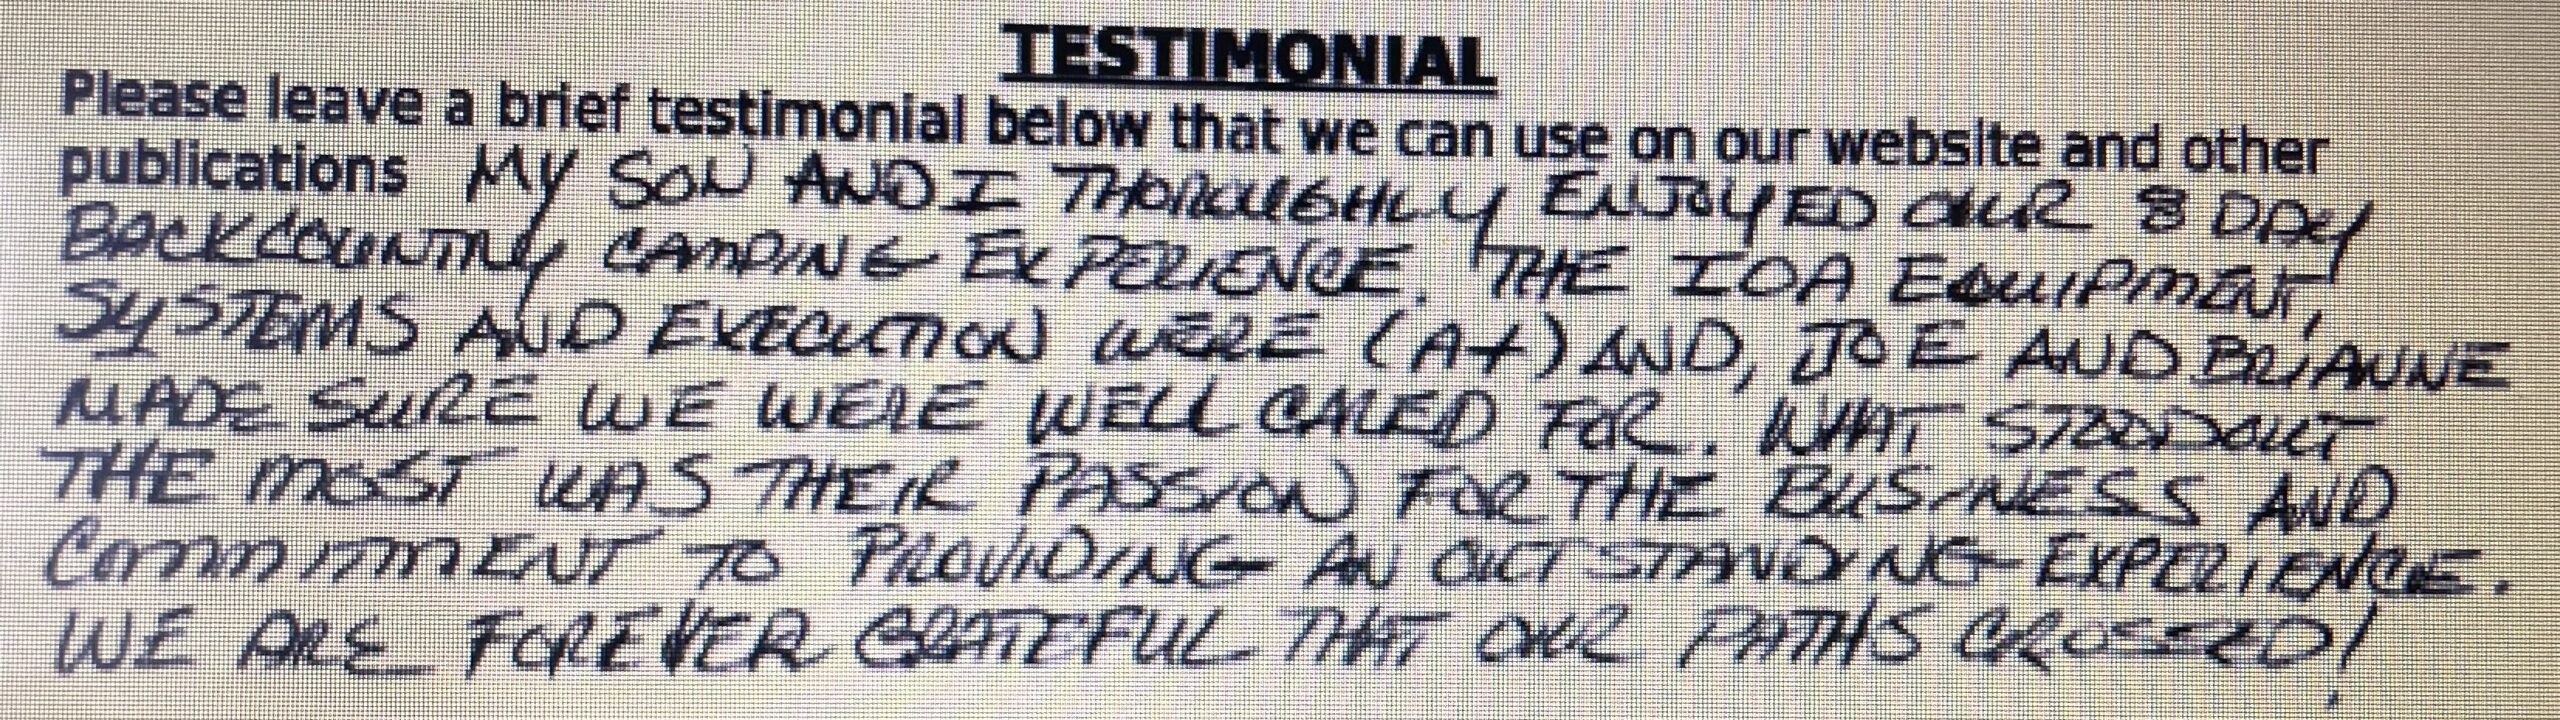 TESTIMONIAL
Please leave a brief testimonial below that we can use on our website and other
publications MY SON AND I THOROUGHLY ENJOYED OUR 8 DAY
BACKCOUNTRY CAMPING EXPERIENCE. THE IOA EQUIPMENT,
SYSTEMS AND EXECUTION WERE (A+) AND, JOE AND BRIANNE
MADE SURE WE WERE WELL CARED FOR. WHAT STOOD OUT
THE MOST WAS THEIR PASSION FOR THE BUSINESS AND
COMMITMENT TO PROVIDING AN OUTSTANDING EXPERIENCE.
WE ARE FOREVER GRATEFUL THAT OUR PATHS CROSSED!